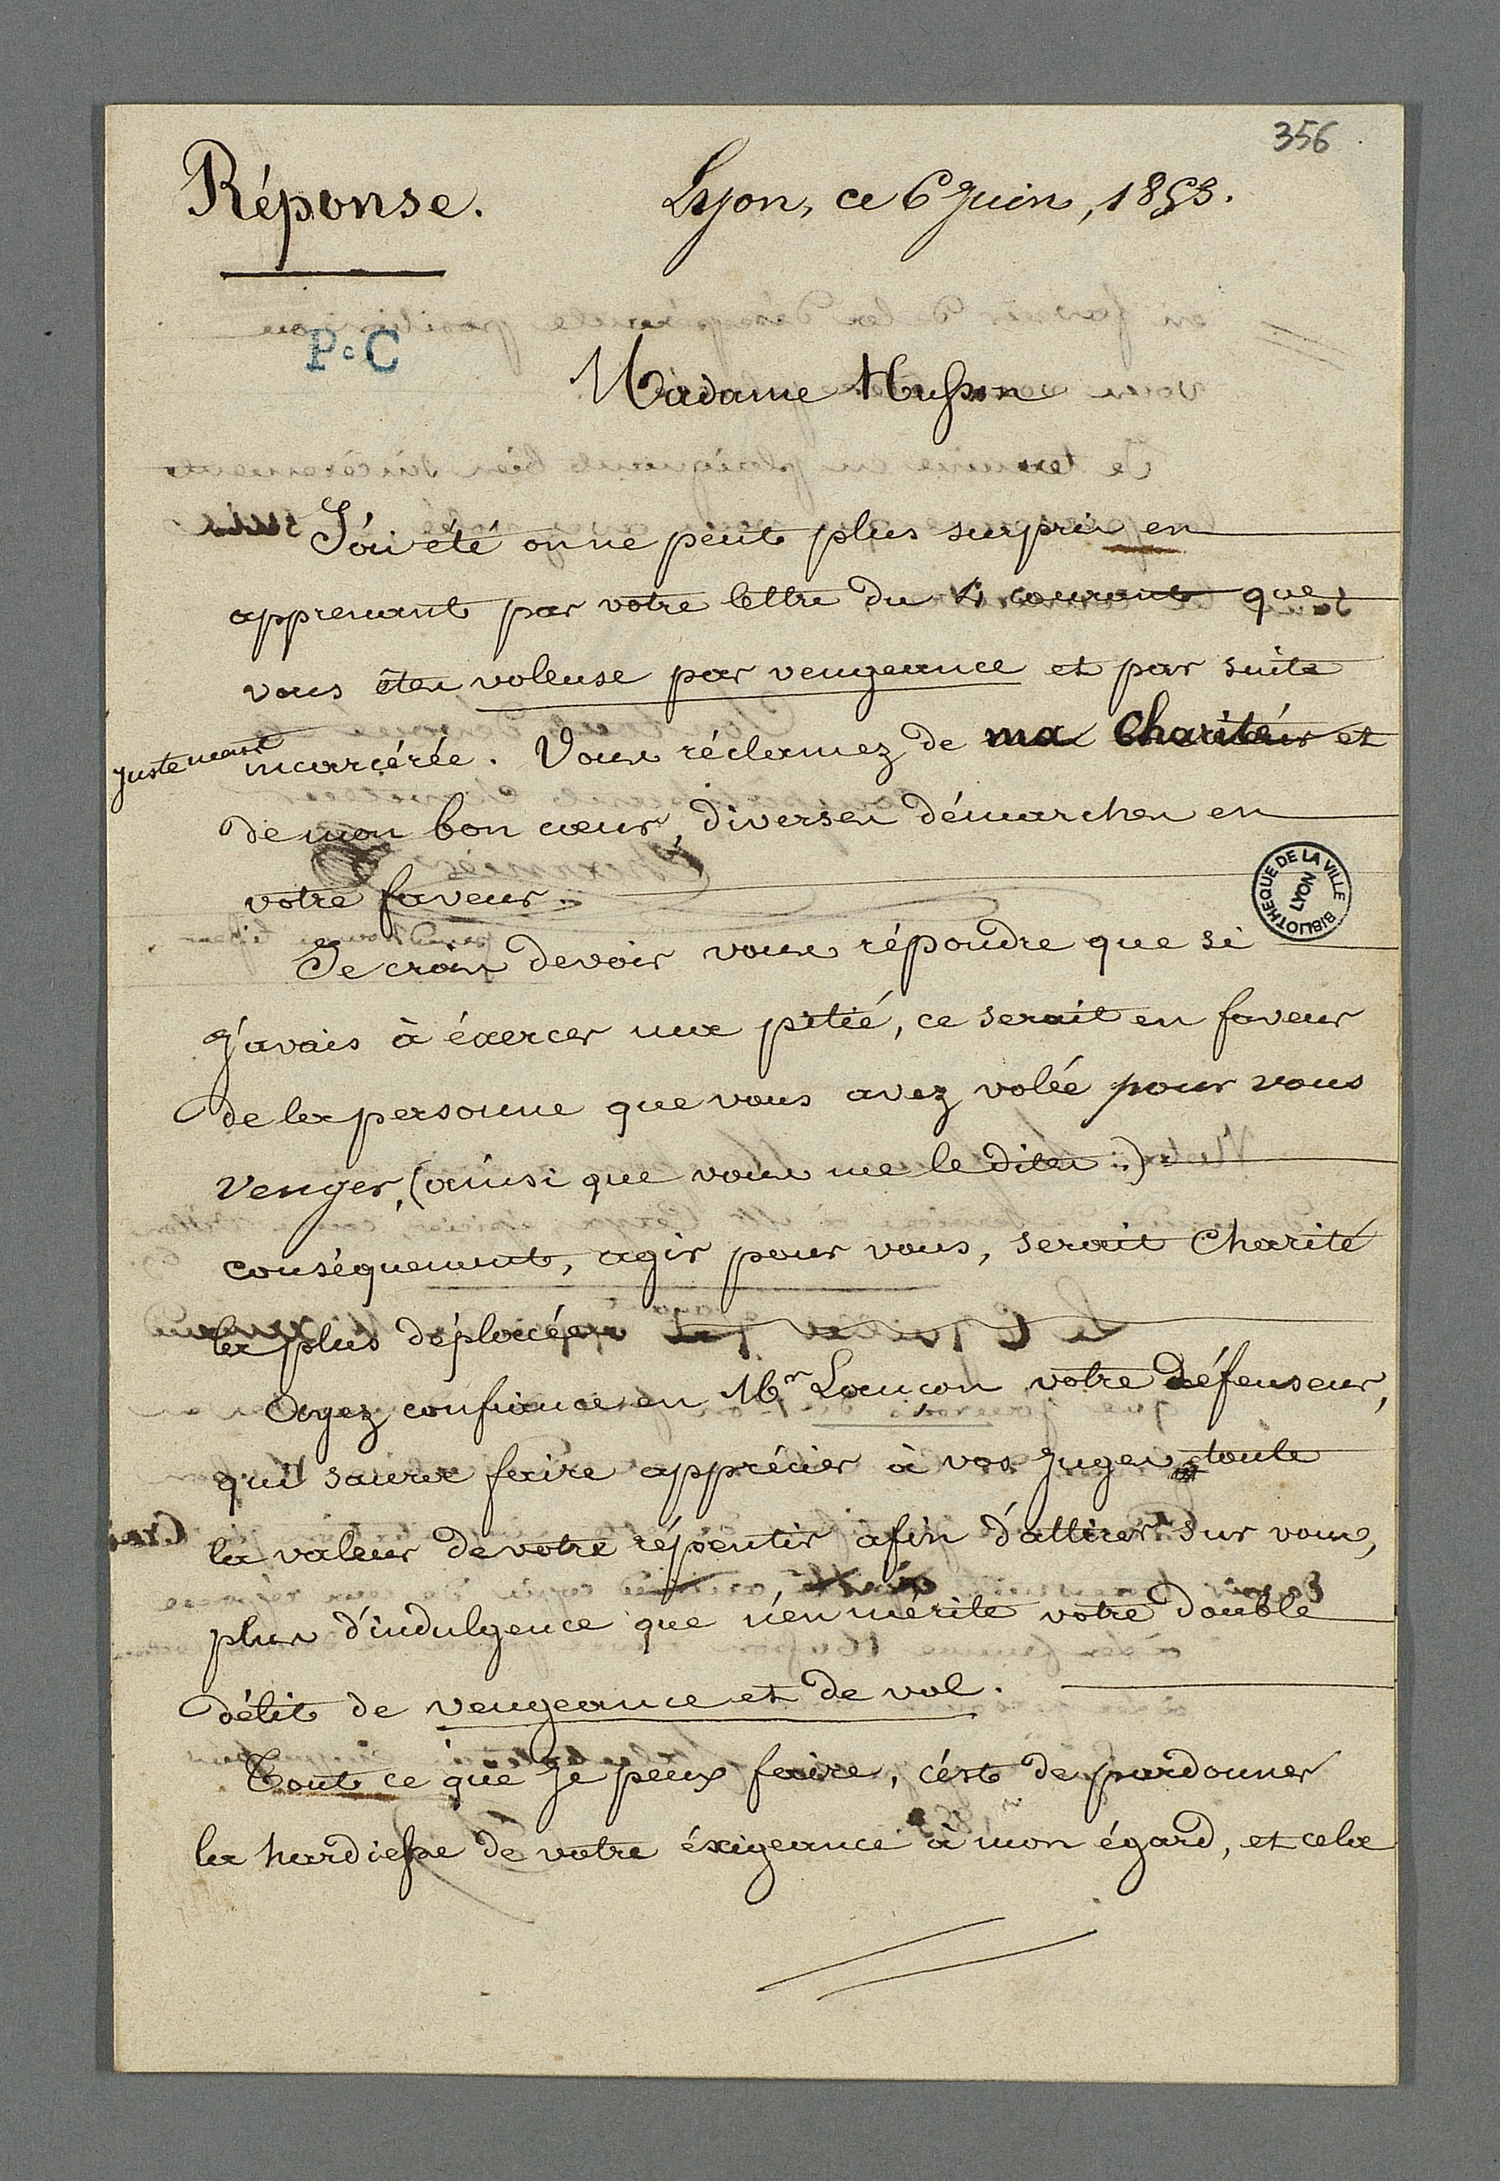 356
Réponse.
Lyon, ce 6 Juin, 1853.
P. C
Madame Husson
J'ai été on ne peut plus surpris en
apprenant par votre lettre du 4 courant que
vous êtes voleuse par vengeance et par suite
justement
incarcérée. Vous réclamez de ma Charité et
de mon bon cœur, diverses démarches en
votre faveur.
BIBLIOTHEQUE DE LA VILLE
LYON
Je crois devoir vous répondre que si
j'avais à éxercer ma pitié, ce serait en faveur
de la personne que vous avez volée pour vous
venger, (ainsi que vous me le dites..)
conséquemment, agir pour vous, serait Charité
la plus déplacée
Ayez confiance en Mr Lançon votre défenseur,
qui saura faire apprécier à vos Juges toute
la valeur de votre répentir afin d'attirer sur vous,
plus d'indulgence que n'en mérite votre double
délit de vengeance et de vol.
Tout ce que je peux faire, c'est de pardonner
la hardiesse de votre éxigeance à mon égard, et cela